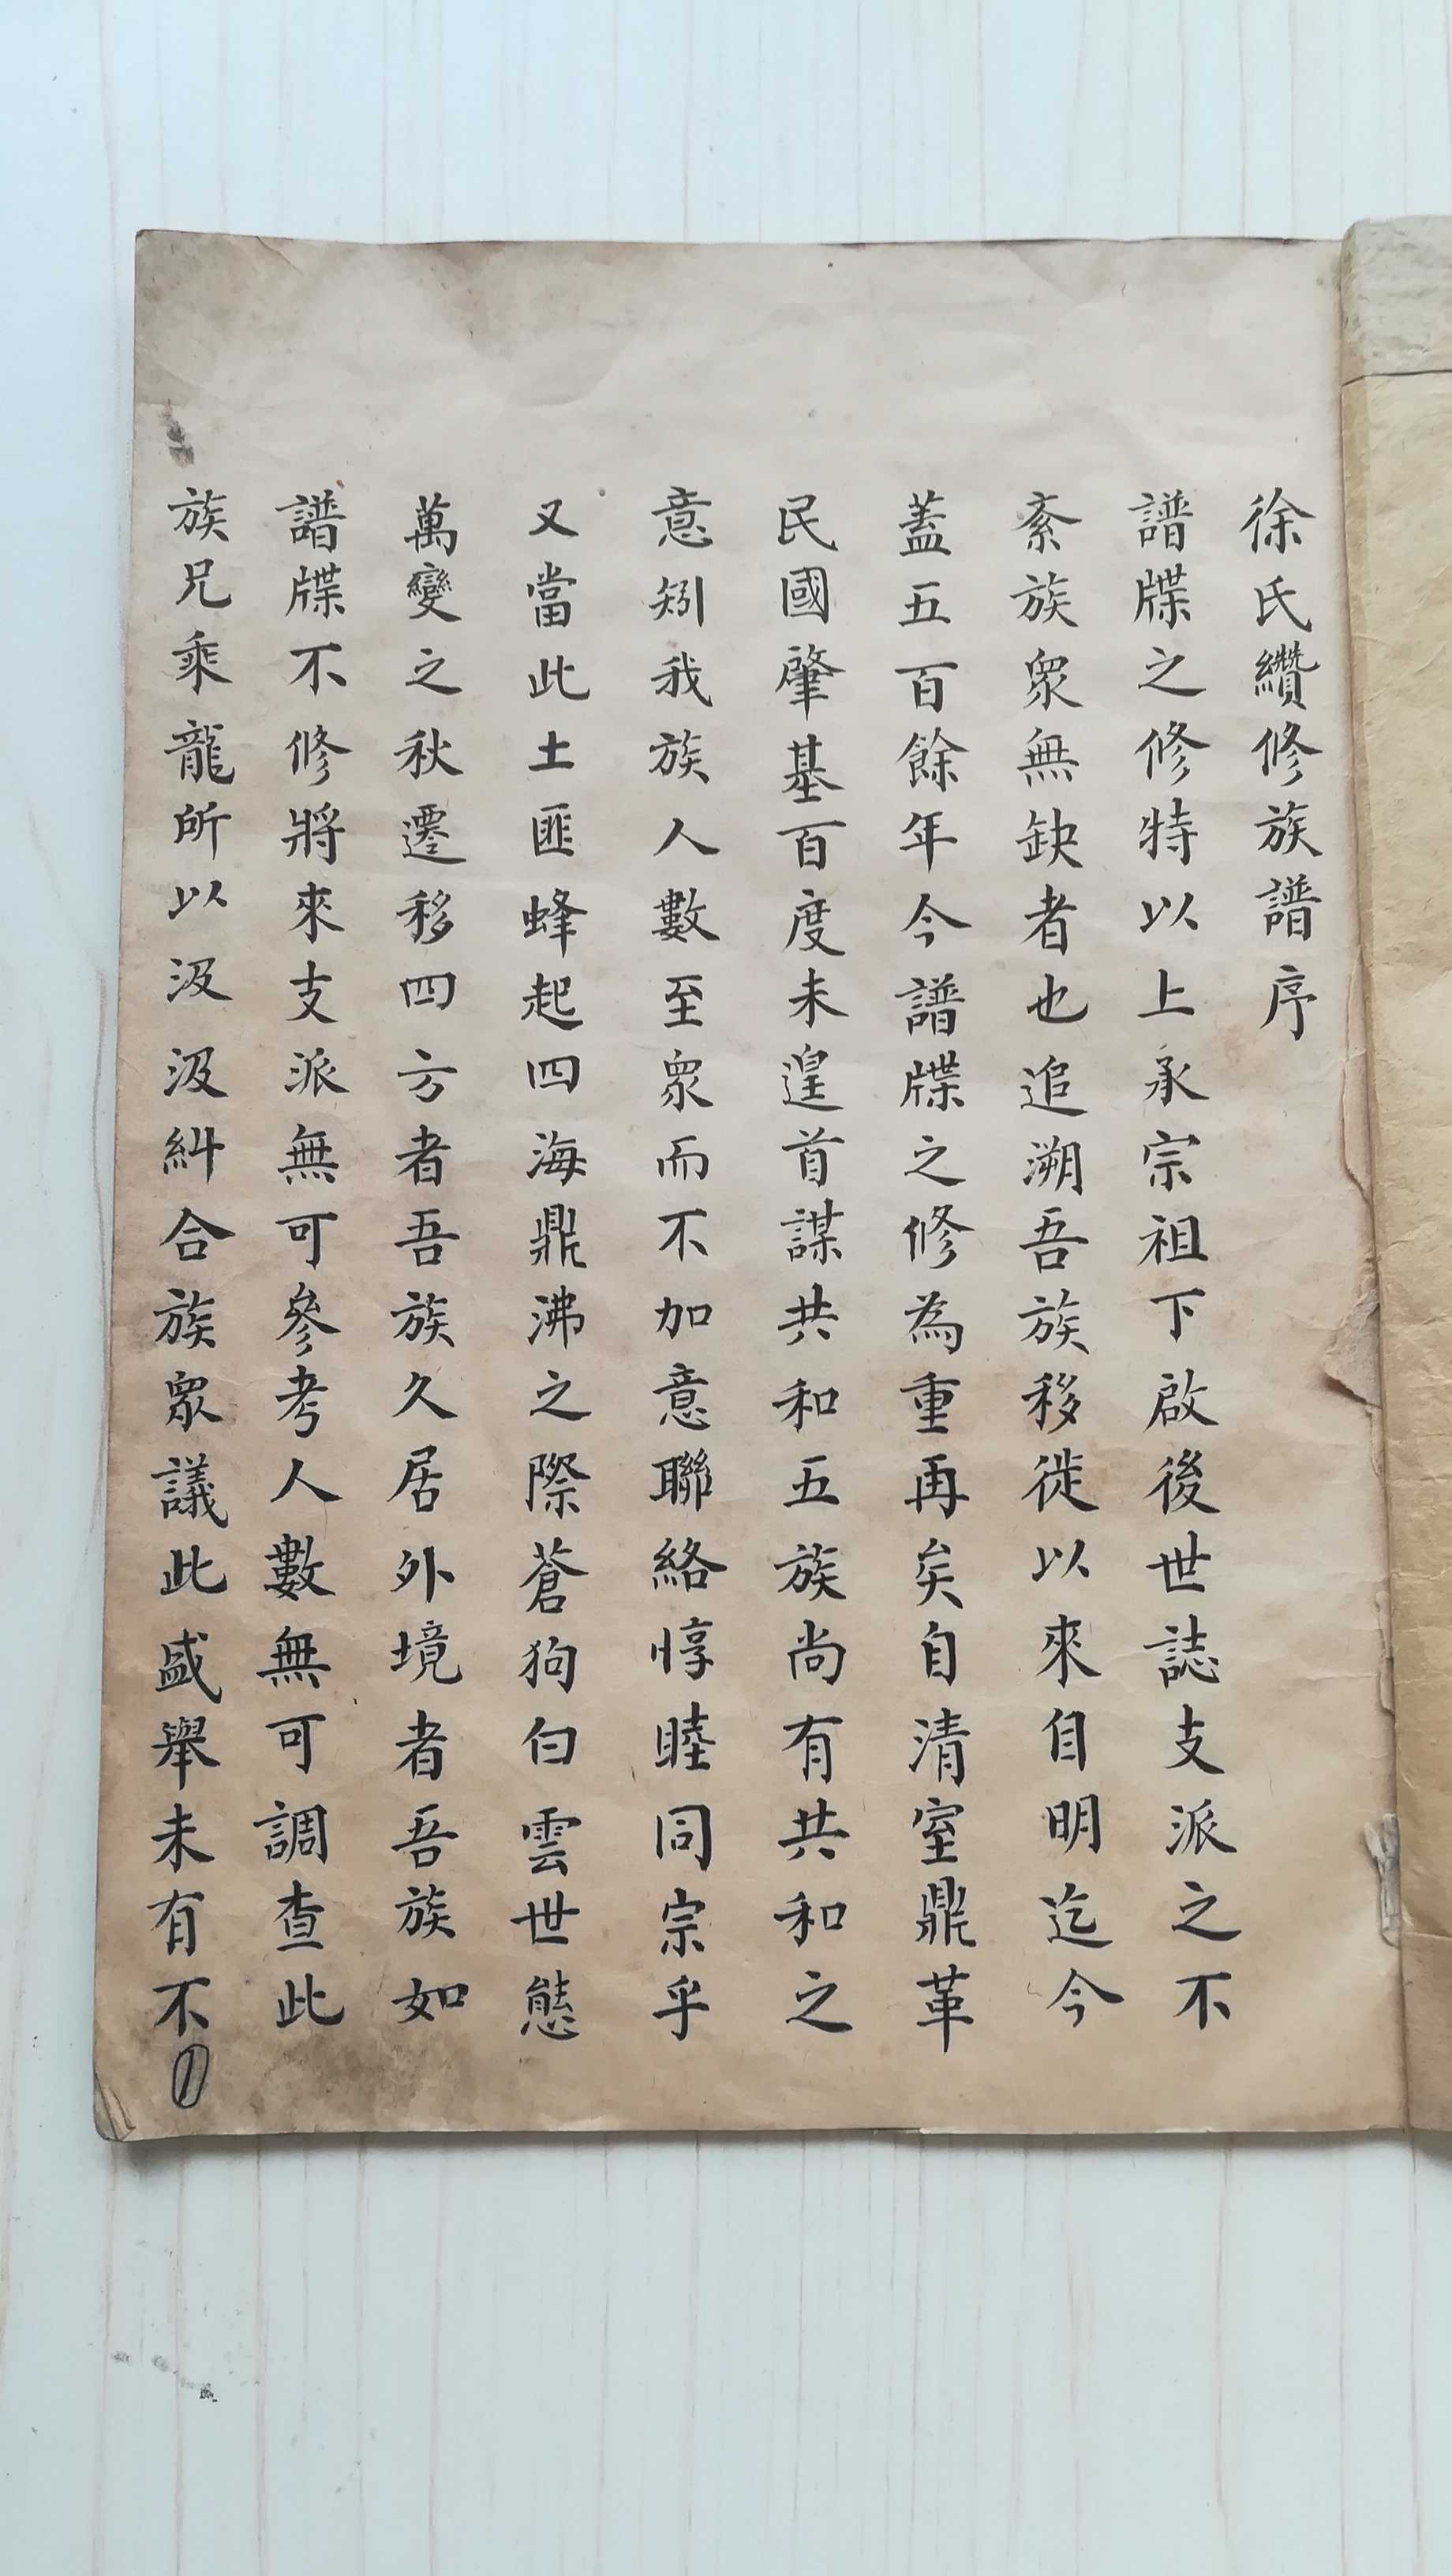 徐氏纘修族譜序
譜牒之修特以上承宗祖下啟後世誌支派之不
紊族眾無缺者也追溯吾族移徙以來自明迄今
蓋五百餘年今譜牒之修為重再矣自清室鼎革
民國肇基百度未遑首謀共和五族尚有共和之
意矧我族人數至眾而不加意聯絡惇睦同宗乎
又當此土匪蜂起四海鼎沸之際蒼狗白雲世態
萬變之秋遷移四方者吾族久居外境者吾族如
譜牒不修將來支派無可參考人數無可調查此
族兄乘龍所以汲汲糾合族眾議此盛舉未有不
①